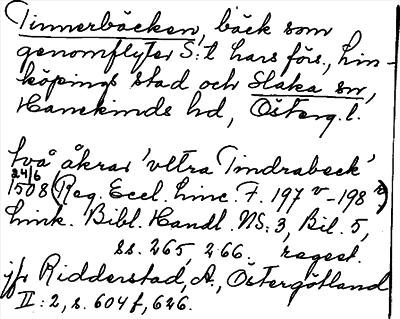 Tinnerbäcken, bäck som
genomflyter S:t Lars förs., Lin-
köpings stad och Slaka sn,
Hanekinds hd, Österg. l.
två åkrar 'vttra Tindrabeck'
24/6
1508 (Reg. Eccl. Linc. F. 197 v - 198 r)
Link. Bibl. Handl. NS: 3, Bil. 5,
ss. 265, 266. regest.
jfr Ridderstad, A., Östergötland
II: 2, s. 604 f, 626.